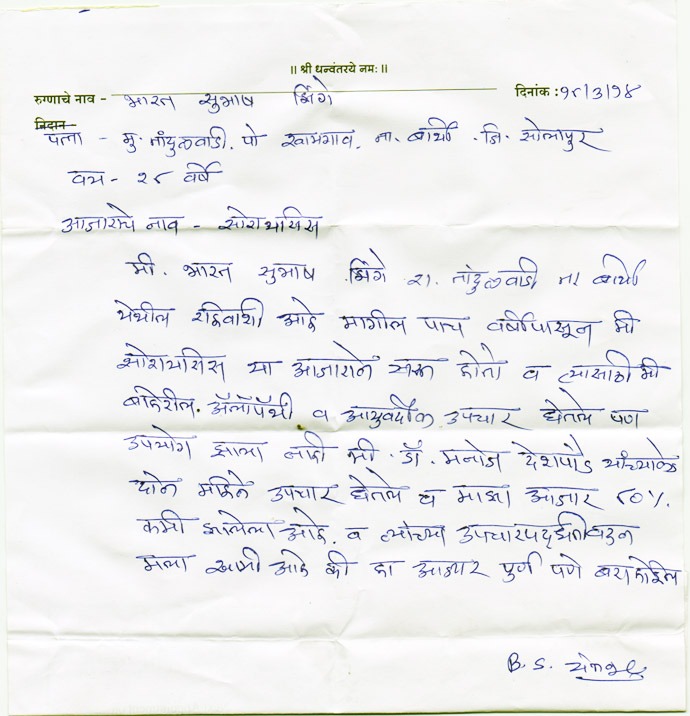 ॥ श्री धन्वंतरये नमः ॥
रुग्णाचे नाव - भारत सुभाष झिंगे दिनांक : १८/३/१४
निदान
पत्ता - मु. तांदुळवाडी. पो खामगाव. ता. बार्शी . जि. सोलापुर
वय - २८ वर्षे
आजाराचे नाव - सोरायसिस
मी. भारत सुभाष झिंगे रा. तांदुळवाडी ता बार्शी
येथील रहिवाशी आहे मागील पाच वर्षापासून मी
सोरायसिस या आजाराने त्रस्त होतो व त्यासाठी मी
बाहेरील. अ‍ॅलोपॅथी व आयुर्वेदीक उपचार घेतले पण
उपयोग झाला नाही मी . डॉ. मनोज देशपांडे यांच्याकडे
दोन महिने उपचार घेतले व माझा आजार ८०%.
कमी झालेला आहे. व त्यांच्या उपचारपद्धतीवरुन
मला खात्री आहे की हा आजार पुर्ण पणे बरा होईल
B. S.